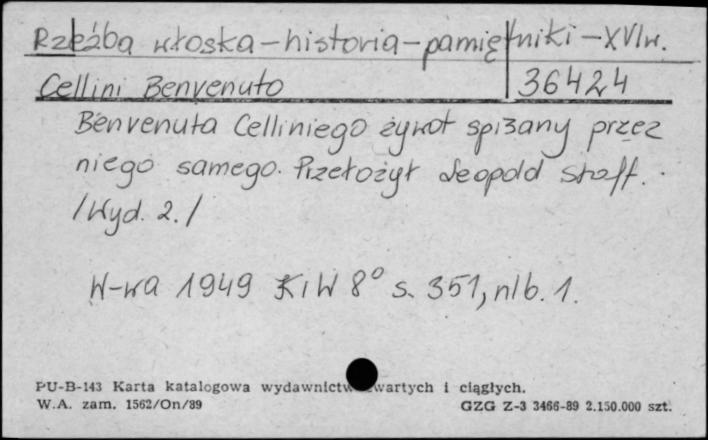 Rzeźba włoska – historia – pamiętniki – XVI w.
Cellini Benvenuto 36424
Benvenuta Celliniego żywot spisany przez
niego samego. Przełożył Leopold Staff.
/Wyd. 2./
W-wa 1949 KiW 8° s. 351, nlb. 1.
PU-B-143 Karta katalogowa wydawnictw zwartych i ciągłych.
W.A. zam. 1562/On/89 GZG Z-3 3466-89 2.150.000 szt.